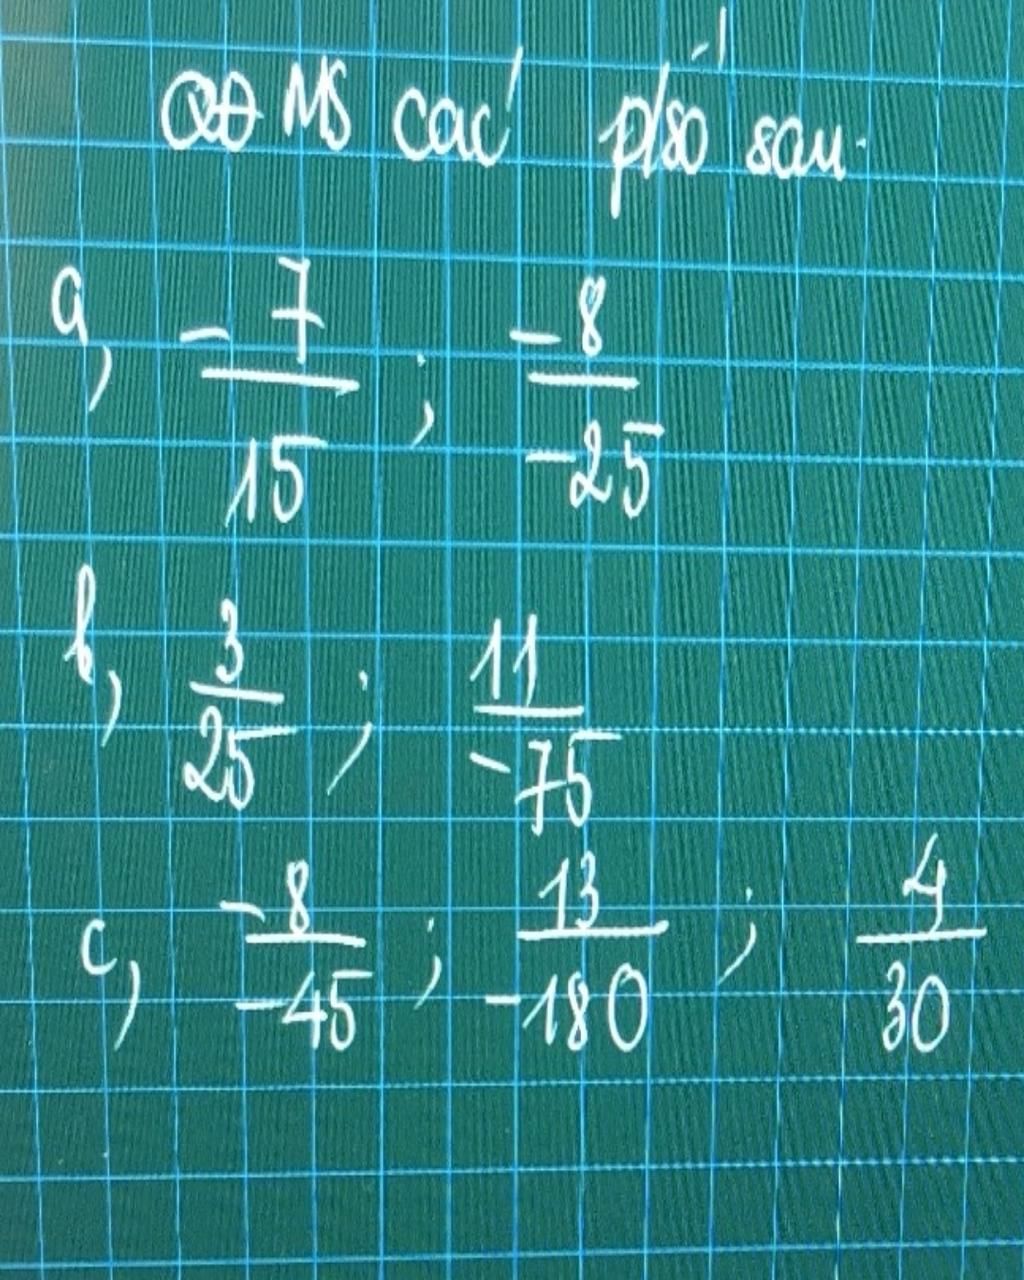 QĐ MS các p/số sau.
a, -7/15 ; -8/-25
b, 3/25 ; 11/-75
c, -8/-45 ; 13/-180 ; 4/30